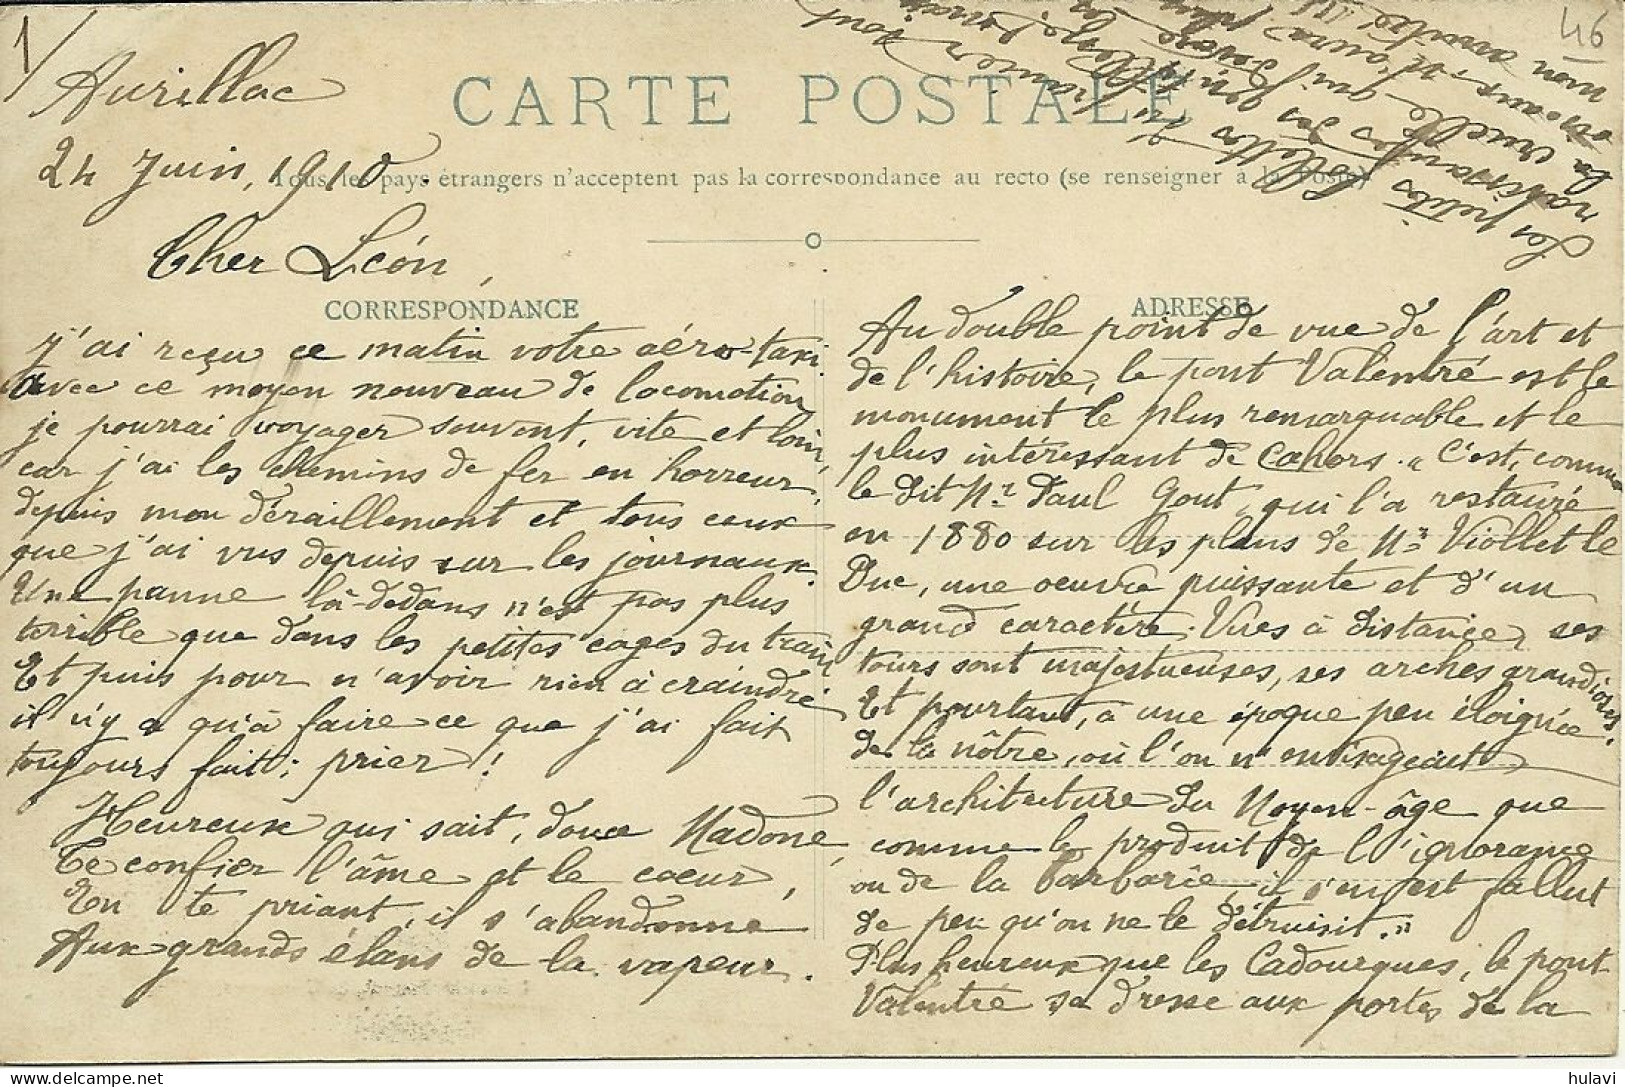 1/
46
Aurillac
24 Juin, 1910.
CARTE POSTALE
Tous les pays étrangers n'acceptent pas la correspondance au recto (se renseigner à la Poste)
Cher Léon,
CORRESPONDANCE
j'ai reçu ce matin votre aéro-taxi.
avec ce moyen nouveau de locomotion
je pourrai voyager souvent, vite et loin,
car j'ai les chemins de fer en horreur,
depuis mon déraillement et tous ceux
que j'ai vus depuis sur les journaux.
Une panne là-dedans n'est pas plus
terrible que dans les petites cages du train
Et puis pour n'avoir rien à craindre
il n'y a qu'à faire ce que j'ai fait
toujours fait; prier!
Heureux qui sait, douce Madone,
Te confier l'âme et le cœur,
En te priant, il s'abandonne
Aux grands élans de la vapeur.
ADRESSE
Au double point de vue de l'art et
de l'histoire, le pont Valentré est le
monument le plus remarquable et le
plus intéressant de Cahors. "C'est, comme
le dit Mr Paul Gout, qui l'a restauré
en 1880 sur les plans de Mr Viollet le
Duc, une oeuvre puissante et d'un
grand caractère. Vues à distance, ses
tours sont majestueuses, ses arches grandioses.
Et pourtant, à une époque peu éloignée
de la nôtre, où l'on n'envisageait
l'architecture du Moyen-âge que
comme le produit de l'ignorance
ou de la barbarie, il s'en est fallut
de peu qu'on ne le détruisit."
Plus heureux que les Cadourques, le pont
Valentré se dresse aux portes de la
Les petites